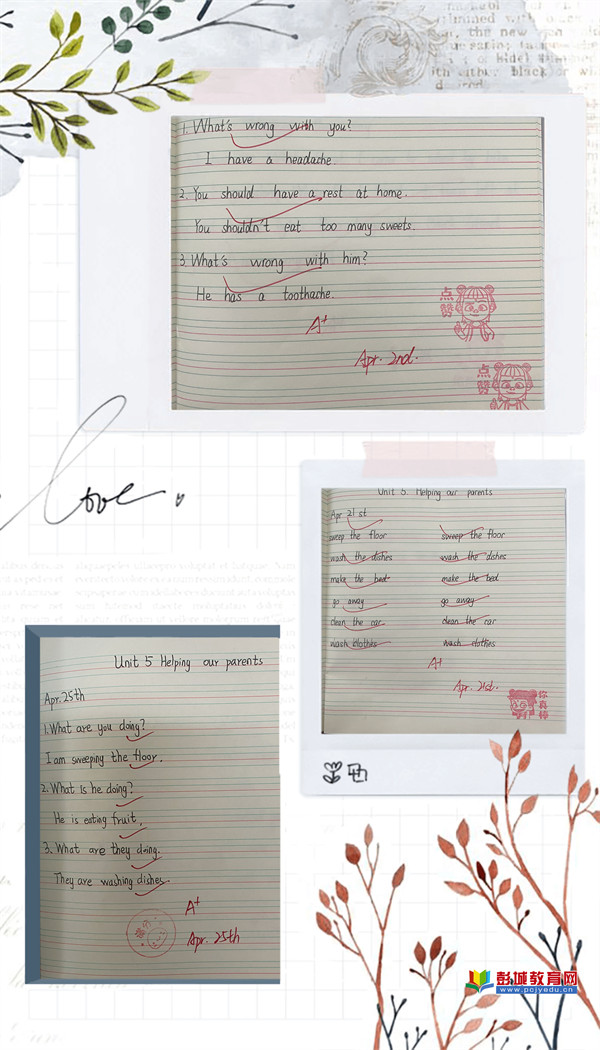 1. What's wrong with you?
I have a headache.
2. You should have a rest at home.
You shouldn't eat too many sweets.
3. What's wrong with him?
He has a toothache.
A+
Apr. 2nd.
点赞
点赞
love
Unit 5. Helping our parents
Apr 21st
sweep the floor sweep the floor
wash the dishes wash the dishes
make the bed make the bed
go away go away
clean the car clean the car
wash clothes wash clothes
A+
Apr. 21st.
你真棒
Unit 5 Helping our parents
Apr. 25th
1. What are you doing?
I am sweeping the floor.
2. What is he doing?
He is eating fruit.
3. What are they doing.
They are washing dishes.
A+
Apr. 25th
彭城教育网
www.pcjyedu.cn